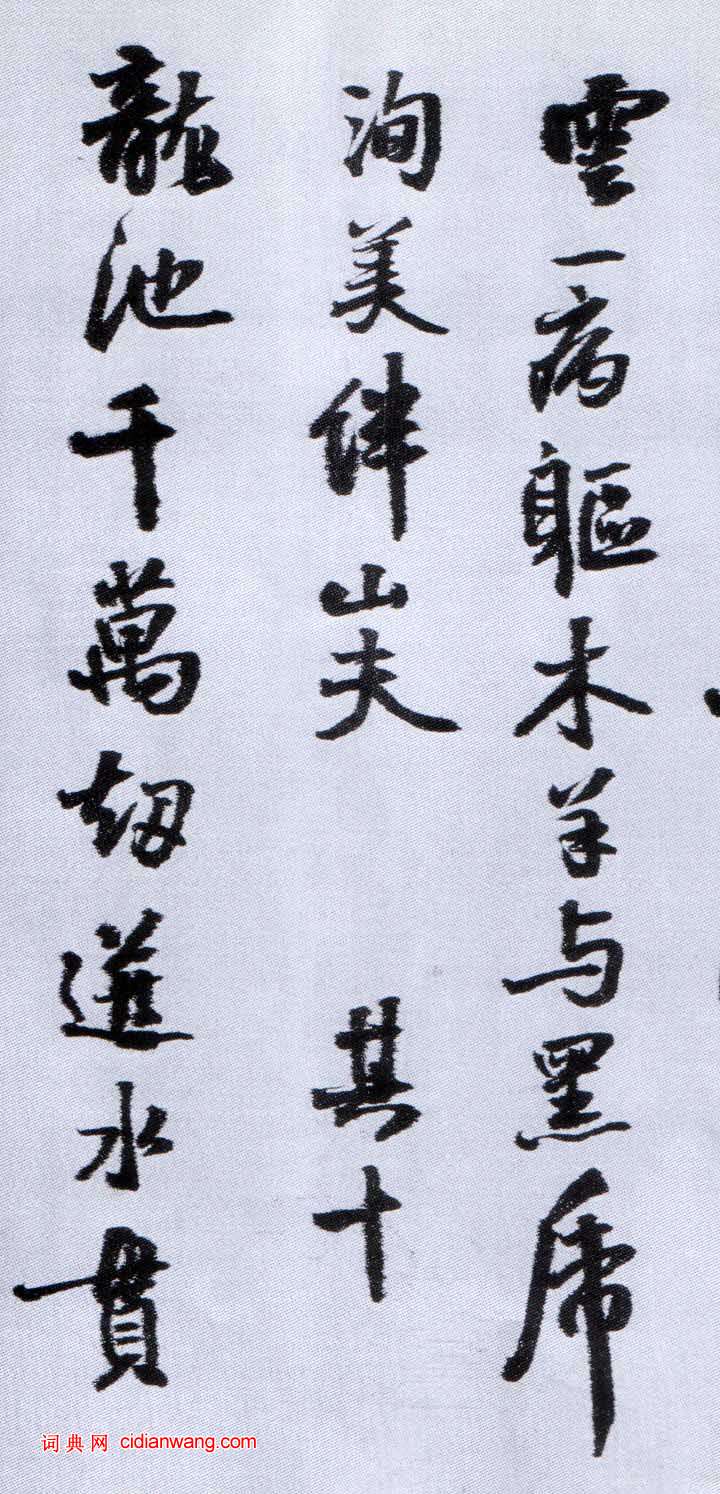 雲一病軀木羊与黑虎
洵美伴山夫 其十
龍池千萬劫道水貫
词典网 cidianwang.com